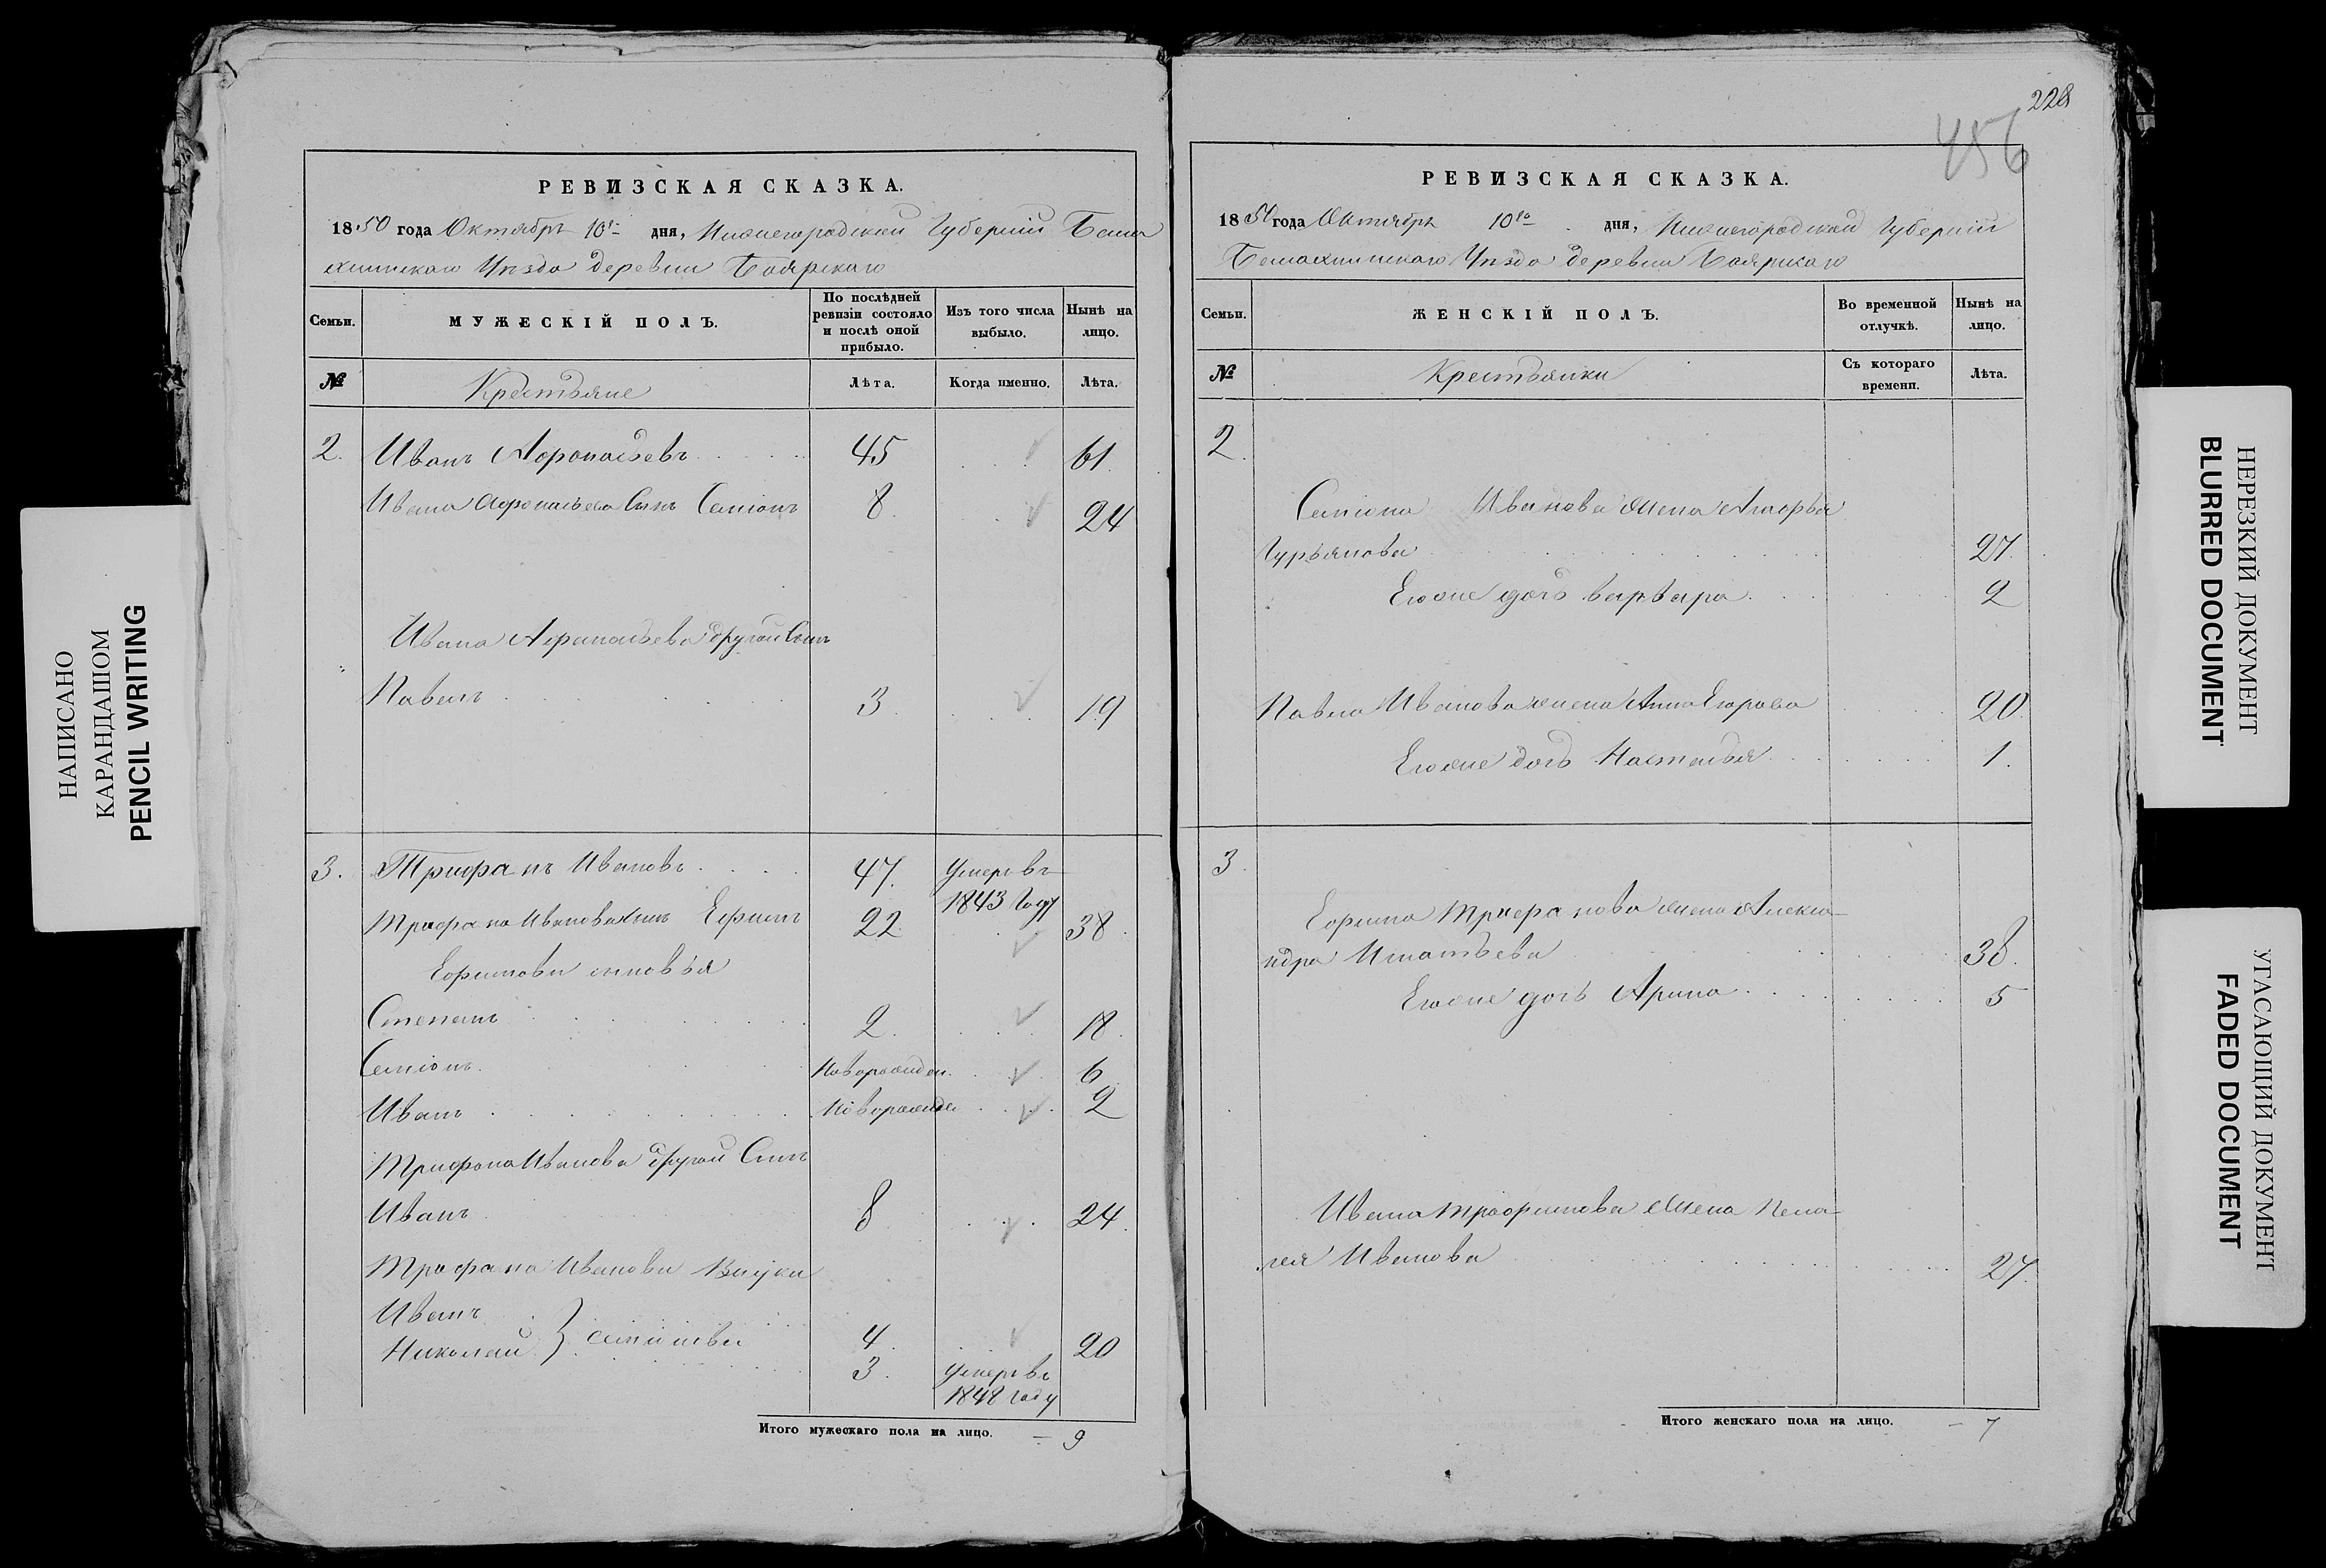 НАПИСАНО
КАРАНДАШОМ
PENCIL WRITING
РЕВИЗСКАЯ СКАЗКА.
1850 года Октября 10го дня, Нижегородской Губернии Бала
хнинскаго Уезда деревни Боярскаго
Семьи.
МУЖЕСКІЙ ПОЛЪ.
По послѣдней ревизіи состояло и послѣ оной прибыло.
Изъ того числа выбыло.
Нынѣ на лицо.
№
Крестьяне
Лѣта.
Когда именно.
Лѣта.
2. Иванъ Афонасьевъ 45 61
Ивана Афонасьева Сынъ Семіонъ 8. 24
Ивана Афанасьева другой Сынъ
Павелъ 3 19
3. Трифанъ Ивановъ 47. умеръ въ
1843 Году
Трифана Иванова сынъ Ефимъ 22. 38
Ефимовы сыновья
Степанъ 2. 18
Семіонъ новорожден. 6
Иванъ новорожде 2
Трифона Иванова другой Сынъ
Иванъ 8 24.
Трифана Иванова Внуки
Иванъ
Николай } Семіоновы 4 20
3. умеръ въ
1848 году
Итого мужескаго пола на лицо. – 9
228
456
РЕВИЗСКАЯ СКАЗКА.
1850 года Октября 10го дня, Нижегородской Губернии
Балахнинскаго Уезда деревни Боярскаго
Семьи.
ЖЕНСКІЙ ПОЛЪ.
Во временной отлучкѣ.
Нынѣ на лицо.
№
Крестьянки
Съ котораго времени.
Лѣта.
2.
Семіона Иванова жена
Гурьянова 27
Егоже дочь варвара 2
Павла Иванова жена Анна Егорова 20.
Егоже дочь Настасья 1.
3.
Ефима Трифанова жена Алекса–
ндра Игнатьева 38.
Егоже дочь Арина 5
Ивана жена Пела–
гея Иванова 27.
Итого женскаго пола на лицо. – 7
НЕРЕЗКИЙ ДОКУМЕНТ
BLURRED DOCUMENT
УГАСАЮЩИЙ ДОКУМЕНТ
FADED DOCUMENT